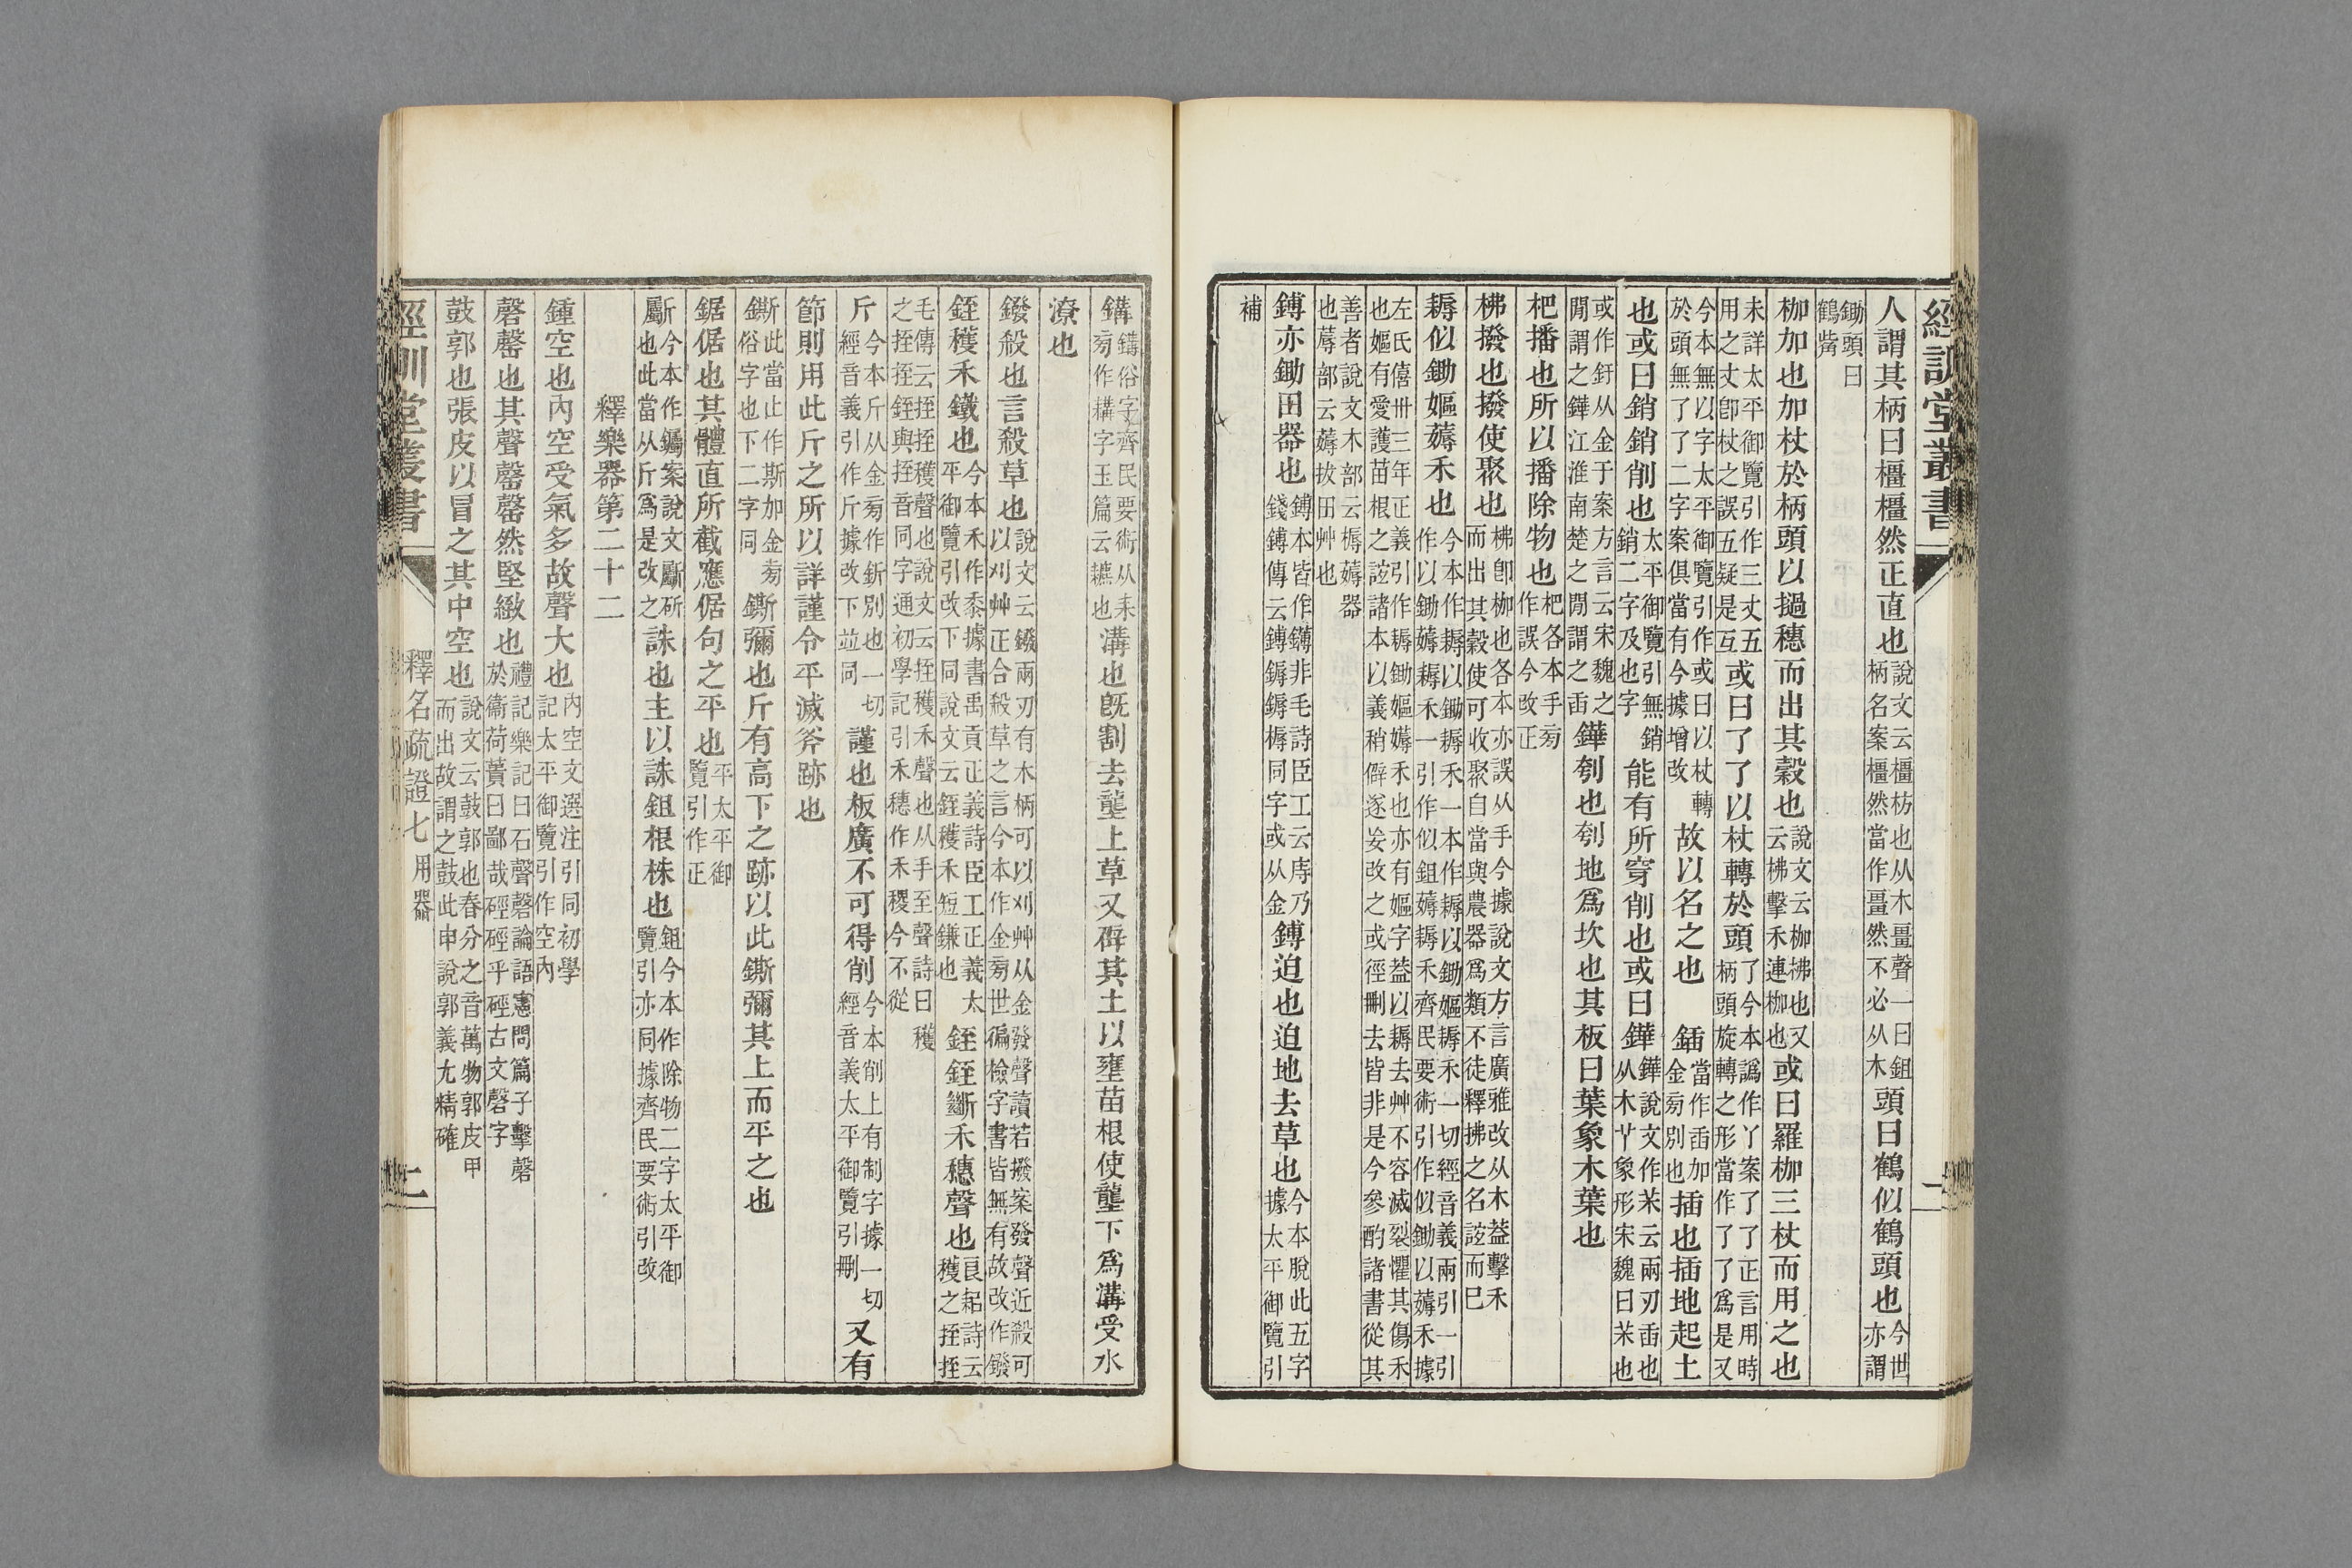 經訓堂叢書
人謂其柄曰橿橿然正直也說文云橿枋也从木畺聲一曰鉏柄名案橿然當作畺然不必从木頭曰鶴似鶴頭也今世亦謂
鋤頭曰鶴觜
枷加也加杖於柄頭以撾穗而出其穀也說文云枷柫也又云柫擊禾連枷也或曰羅枷三杖而用之也
未詳太平御覽引作三丈五用之丈卽杖之誤五疑是互或曰了了以杖轉於頭了今本譌作丫案了了正言用時柄頭旋轉之形當作了了爲是又
今本無以字太平御覽引作或曰以杖轉於頭無了了二字案俱當有今據增改故以名之也
鍤當作臿加金旁別也插也插地起土
也或曰銷銷削也太平御覽引無銷銷二字及也字能有所穿削也或曰鏵鏵說文作𣎵云兩刃臿也从木丫象形宋魏曰𣎵也
或作釪从金于案方言云宋魏之閒謂之鏵江淮南楚之閒謂之臿鏵刳也刳地爲坎也其板曰葉象木葉也
杷播也所以播除物也杷各本手旁作誤今改正
柫撥也撥使聚也柫卽枷也各本亦誤从手今據說文方言廣雅改从木葢擊禾而出其穀使可收聚自當與農器爲類不徒釋拂之名誼而已
耨似鋤嫗薅禾也今本作耨以鋤耨禾一本作耨以鋤嫗耨禾一切經音義兩引一引作以鋤薅耨禾一引作似鉏薅耨禾齊民要術引作似鋤以薅禾據
左氏僖卅三年正義引作耨鋤嫗薅禾也亦有嫗字葢以耨去艸不容滅裂懼其傷禾也嫗有愛護苗根之誼諸本以義稍僻遂妄改之或徑刪去皆非是今參酌諸書從其
善者說文木部云槈薅器也蓐部云薅拔田艸也
鎛亦鋤田器也鎛本皆作鑮非毛詩臣工云庤乃錢鎛傳云鎛鎒鎒槈同字或从金鎛迫也迫地去草也今本脫此五字據太平御覽引
補
鐫鐫俗字齊民要術从耒旁作耩字玉篇云耩也溝也旣割去壟上草又辟其土以壅苗根使壟下爲溝受水
潦也
鏺殺也言殺草也說文云鏺兩刃有木柄可以刈艸从金發聲讀若撥案發聲近殺可以刈艸正合殺草之言今本作金旁世徧檢字書皆無有故改作鏺
銍穫禾鐵也今本禾作黍據書禹貢正義詩臣工正義太平御覽引改下同說文云銍穫禾短鎌也銍銍斷禾穗聲也良耜詩云穫之挃挃
毛傳云挃挃穫聲也說文云挃穫禾聲也从手至聲詩曰穫之挃挃銍與挃音同字通初學記引禾穗作禾稷今不從
斤今本斤从金旁作釿別也一切經音義引作斤據改下並同謹也板廣不可得削今本削上有制字據一切經音義太平御覽引刪又有
節則用此斤之所以詳謹令平滅斧跡也
鐁此當止作斯加金旁俗字也下二字同鐁彌也斤有高下之跡以此鐁彌其上而平之也
鋸倨也其體直所截應倨句之平也平太平御覽引作正
斸今本作钃案說文斸斫也此當从斤爲是改之誅也主以誅鉏根株也鉏今本作除物二字太平御覽引亦同據齊民要術引改
釋樂器第二十二
鍾空也內空受氣多故聲大也內空文選注引同初學記太平御覽引作空內
磬罄也其聲罄罄然堅緻也禮記樂記曰石聲磬論語憲問篇子擊磬於衞荷蕢曰鄙哉硜硜乎硜古文磬字
鼓郭也張皮以冒之其中空也說文云鼓郭也春分之音萬物郭皮甲而出故謂之鼓此申說郭義尤精確
經訓堂叢書
釋名疏證七 用器